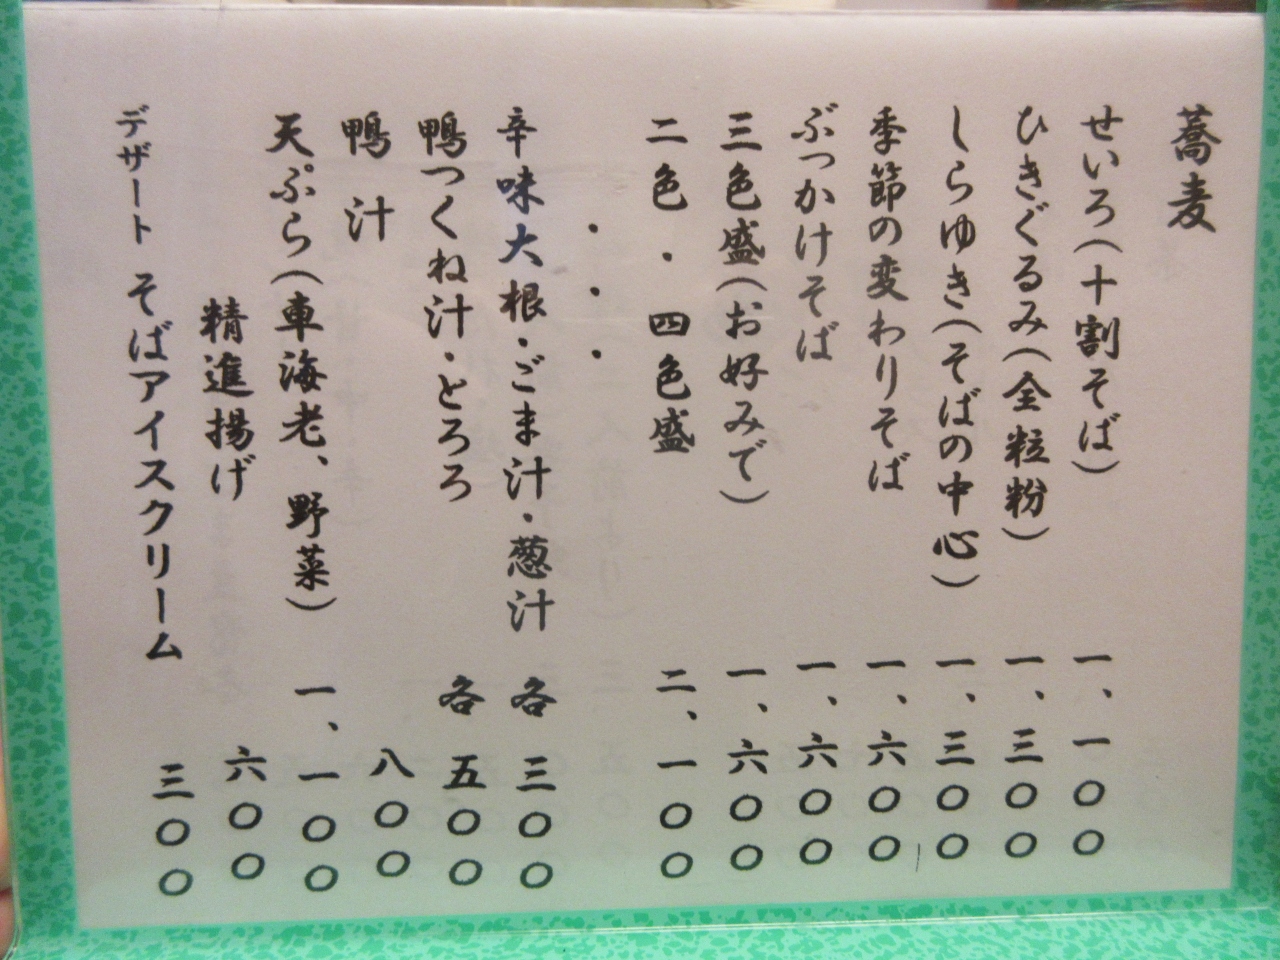 蕎麦
せいろ(十割そば) 一、一〇〇
ひきぐるみ(全粒粉) 一、三〇〇
しらゆき(そばの中心) 一、三〇〇
季節の変わりそば 一、六〇〇
ぶっかけそば 一、六〇〇
三色盛(お好みで) 一、六〇〇
二色・四色盛 二、一〇〇
・・・
辛味大根・ごま汁・葱汁 各三〇〇
鴨つくね汁・とろろ 各五〇〇
鴨 汁 八〇〇
天ぷら(車海老、野菜) 一、一〇〇
精進揚げ 六〇〇
デザート そばアイスクリーム 三〇〇